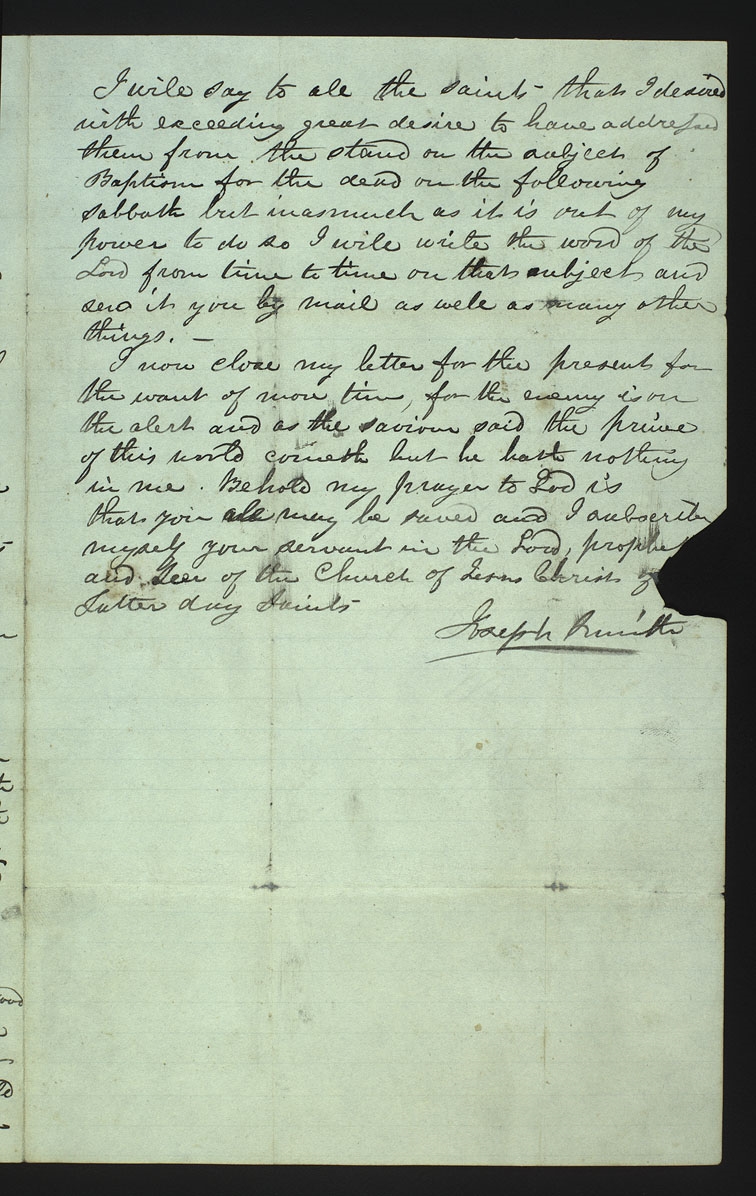 I will say to all the saints that I desired
with exceeding great desire to have addressed
them from the stand on the subject of
Baptism for the dead on the following
sabbath but inasmuch as it is out of my
power to do so I will write the word of the
Lord from time to time on that subject and
send it you by mail as well as many other
things. —
I now close my letter for the present for
the want of more time, for the enemy is on
the alert and as the saviour said the prince
of this world cometh but he hath nothing
in me. Behold my prayer to God is
that you all may be saved and I subscribe
myself your servant in the Lord, prophet
and Seer of the Church of Jesus Christ
Latter day Saints
Joseph Smith